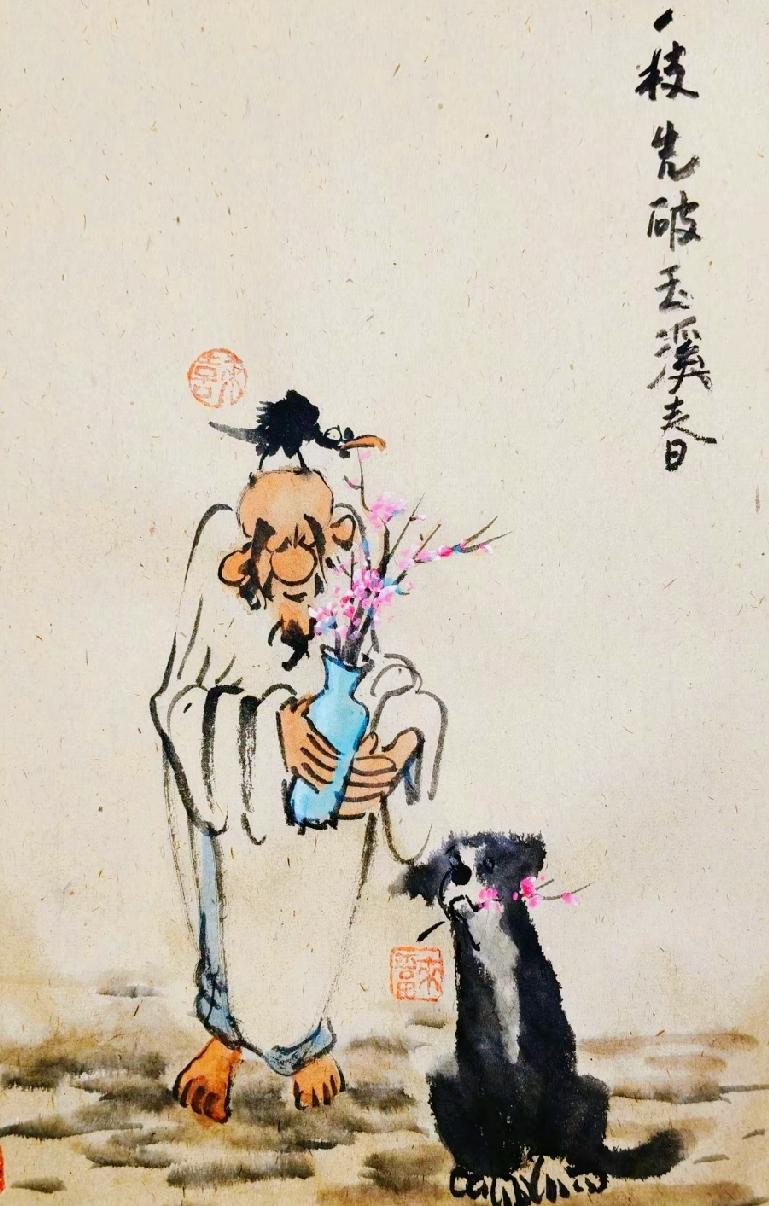 一枝先破玉溪春